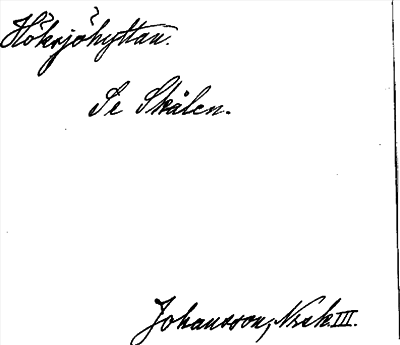 Höksjöhyttan.
Se Skålen.
Johansson, Norsk III.